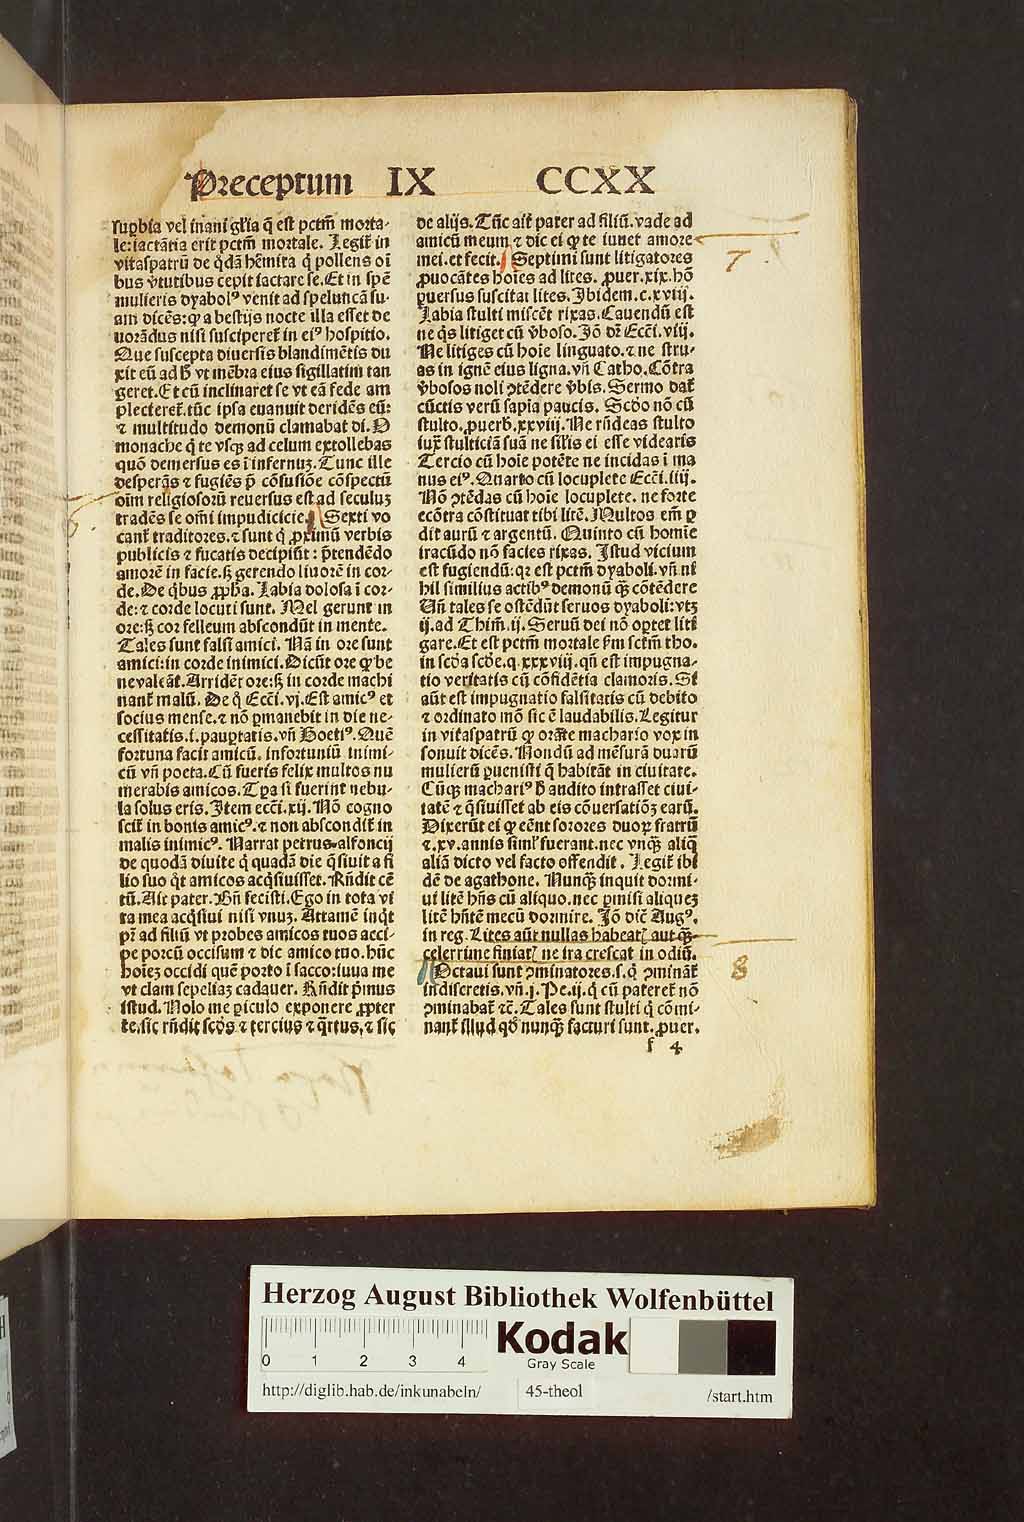 Preceptum IX CCXX
suꝑbia vel inani gl'ia q̄ est pctm̄ morta-
le: iactātia erit pctm̄ mortale. Legit̄ in
vitaspatrū de q̇dā hēmita q̇ pollens oī
bus v̄tutibus cepit iactare se. Et in spē
mulieris dyabolꝰ venit ad speluncā su-
am dicēs: ꝙ a bestijs nocte illa esset de
uorādus nisi susciperet̄ in eiꝰ hospitio.
Que suscepta diuersis blandimētis du
xit eū ad ħ vt mēbra eius sigillatim tan
geret. Et cū inclinaret se vt eā fede am
plecteret̄. tūc ipsa euanuit deridēs eū:
⁊ multitudo demonū clamabat di. O
monache q̇ te vsqꝫ ad celum extollebas
quō demersus es ī infernuꝫ. Tunc ille
desperās ⁊ fugiēs p̄ cōfusiōe cōspectū
oīm religiosorū reuersus est ad seculuꝫ
tradēs se om̄i impudicicie. Sexti vo
cant̄ traditores. ⁊ sunt q̇ ꝓximū verbis
publicis ⁊ fucatis decipiūt: p̄tendēdo
amorē in facie. sꝫ gerendo liuorē in cor-
de. De q̇bus ꝓpħa. Labia dolosa ī cor-
de: ⁊ corde locuti sunt. Mel gerunt in
ore: sꝫ cor felleum abscondūt in mente.
Tales sunt falsi amici. Nā in ore sunt
amici: in corde inimici. Dicūt ore ꝙ be
ne valeāt. Arridēt ore: sꝫ in corde machi
nant̄ malū. De q̇ Ecci. vj. Est amicꝰ et
socius mense. ⁊ nō ꝑmanebit in die ne-
cessitatis. i. pauꝑtatis. vn̄ Boetiꝰ. Quē
fortuna facit amicū. infortuniū inimi-
cū vn̄ poeta. Cū fueris felix multos nu
merabis amicos. Tꝑa si fuerint nebu-
la solus eris. Item ecci. xij. Nō cogno
scit̄ in bonis amicꝰ. ⁊ non abscondit̄ in
malis inimicꝰ. Narrat petrus alfoncij
de quodā diuite q̇ quadā die q̄siuit a fi
lio suo q̇t amicos acq̇siuisset. Rn̄dit cē
tū. Ait pater. Bn̄ fecisti. Ego in tota vi
ta mea acq̇siui nisi vnuꝫ. Attamē inq̇t
pr̄ ad filiū vt probes amicos tuos acci-
pe porcū occisum ⁊ dic amico tuo. hūc
hoīeꝫ occidi quē porto ī sacco: iuua me
vt clam sepeliaꝫ cadauer. Rn̄dit p̄mus
istud. Nolo me ꝑiculo exponere ꝓpter
te. sic rn̄dit scd̄s ⁊ tercius ⁊ q̄rtus, ⁊ sic
de alijs. Tūc ait pater ad filiū. vade ad
amicū meum ⁊ dic ei ꝙ te iuuet amore
mei. et fecit. Septimi sunt litigatores
ꝓuocātes hoīes ad lites. ꝓuer. xix. hō
ꝑuersus suscitat lites. Ibidem. c. xviij.
Labia stulti miscēt rixas. Cauendū est
ne q̇s litiget cū v̄boso. Iō dr̄ Ecci. viij.
Ne litiges cū hoīe linguato. ⁊ ne stru-
as in ignē eius ligna. vn̄ Catho. Cōtra
v̄bosos noli ꝯtēdere v̄bis. Sermo dat̄
cūctis verū sapia paucis. Scd̄o nō cū
stulto. ꝓuerb. xxviij. Ne rn̄deas stulto
iux̄ stulticiā suā ne sil'is ei esse videaris
Tercio cū hoīe potēte ne incidas ī ma
nus eiꝰ. Quarto cū locuplete Ecci. iiij.
Nō ꝯtēdas cū hoīe locuplete. ne forte
ecōtra cōstituat tibi litē. Multos em̄ ꝑ
dit aurū ⁊ argentū. Quinto cū homīe
iracūdo nō facies rixas. Istud vicium
est fugiendū: qꝛ est pctm̄ dyaboli. vn̄ ni
hil similius actibꝰ demonū qꝫ̄ cōtēdere
Vn̄ tales se ostēdūt seruos dyaboli: vtꝫ
ij. ad Thim̄. ij. Seruū dei nō optet liti
gare. Et est pctm̄ mortale ẜm sctm̄ tho.
in scd̄a scd̄e. q. xxxviij. qn̄ est impugna-
tio veritatis cū cōfidētia clamoris. Si
aūt est impugnatio falsitatis cū debito
⁊ ordinato mō sic ē laudabilis. Legitur
in vitaspatrū ꝙ orāte machario vox in
sonuit dicēs. Nondū ad mēsurā duarū
mulierū ꝑuenisti q̄ habitāt in ciuitate.
Cūqꝫ machariꝰ ħ audito intrasset ciui-
tatē ⁊ q̄siuisset ab eis cōuersatiōꝫ earū.
Dixerūt ei ꝙ eēnt sorores duoꝝ fratrū
⁊. xv. annis siml' fuerant. nec vnqꝫ̄ aliq̄
aliā dicto vel facto offendit. Legit̄ ibi
dē de agathone. Nunqꝫ̄ inquit dormi-
ui litē hn̄s cū aliquo. nec ꝑmisi aliqueꝫ
litē hn̄tē mecū dormire. Iō dic̄ Augꝰ.
in reg. Lites aūt nullas habeat̄ aut qꝫ̄
celerrime finiat̄ ne ira crescat in odiū.
Octaui sunt ꝯminatores. s. q̇ ꝯmināt̄
indiscretis. vn̄. j. Pe. ij. q̇ cū pateret̄ nō
ꝯminabat̄ ⁊c̄. Tales sunt stulti q̇ cōmi-
nant̄ illud qd̄ nunqꝫ̄ facturi sunt. ꝓuer.
f 4
7.
8
6.
Herzog August Bibliothek Wolfenbüttel
0 1 2 3 4
Kodak
Gray Scale
http://diglib.hab.de/inkunabeln/ 45-theol /start.htm